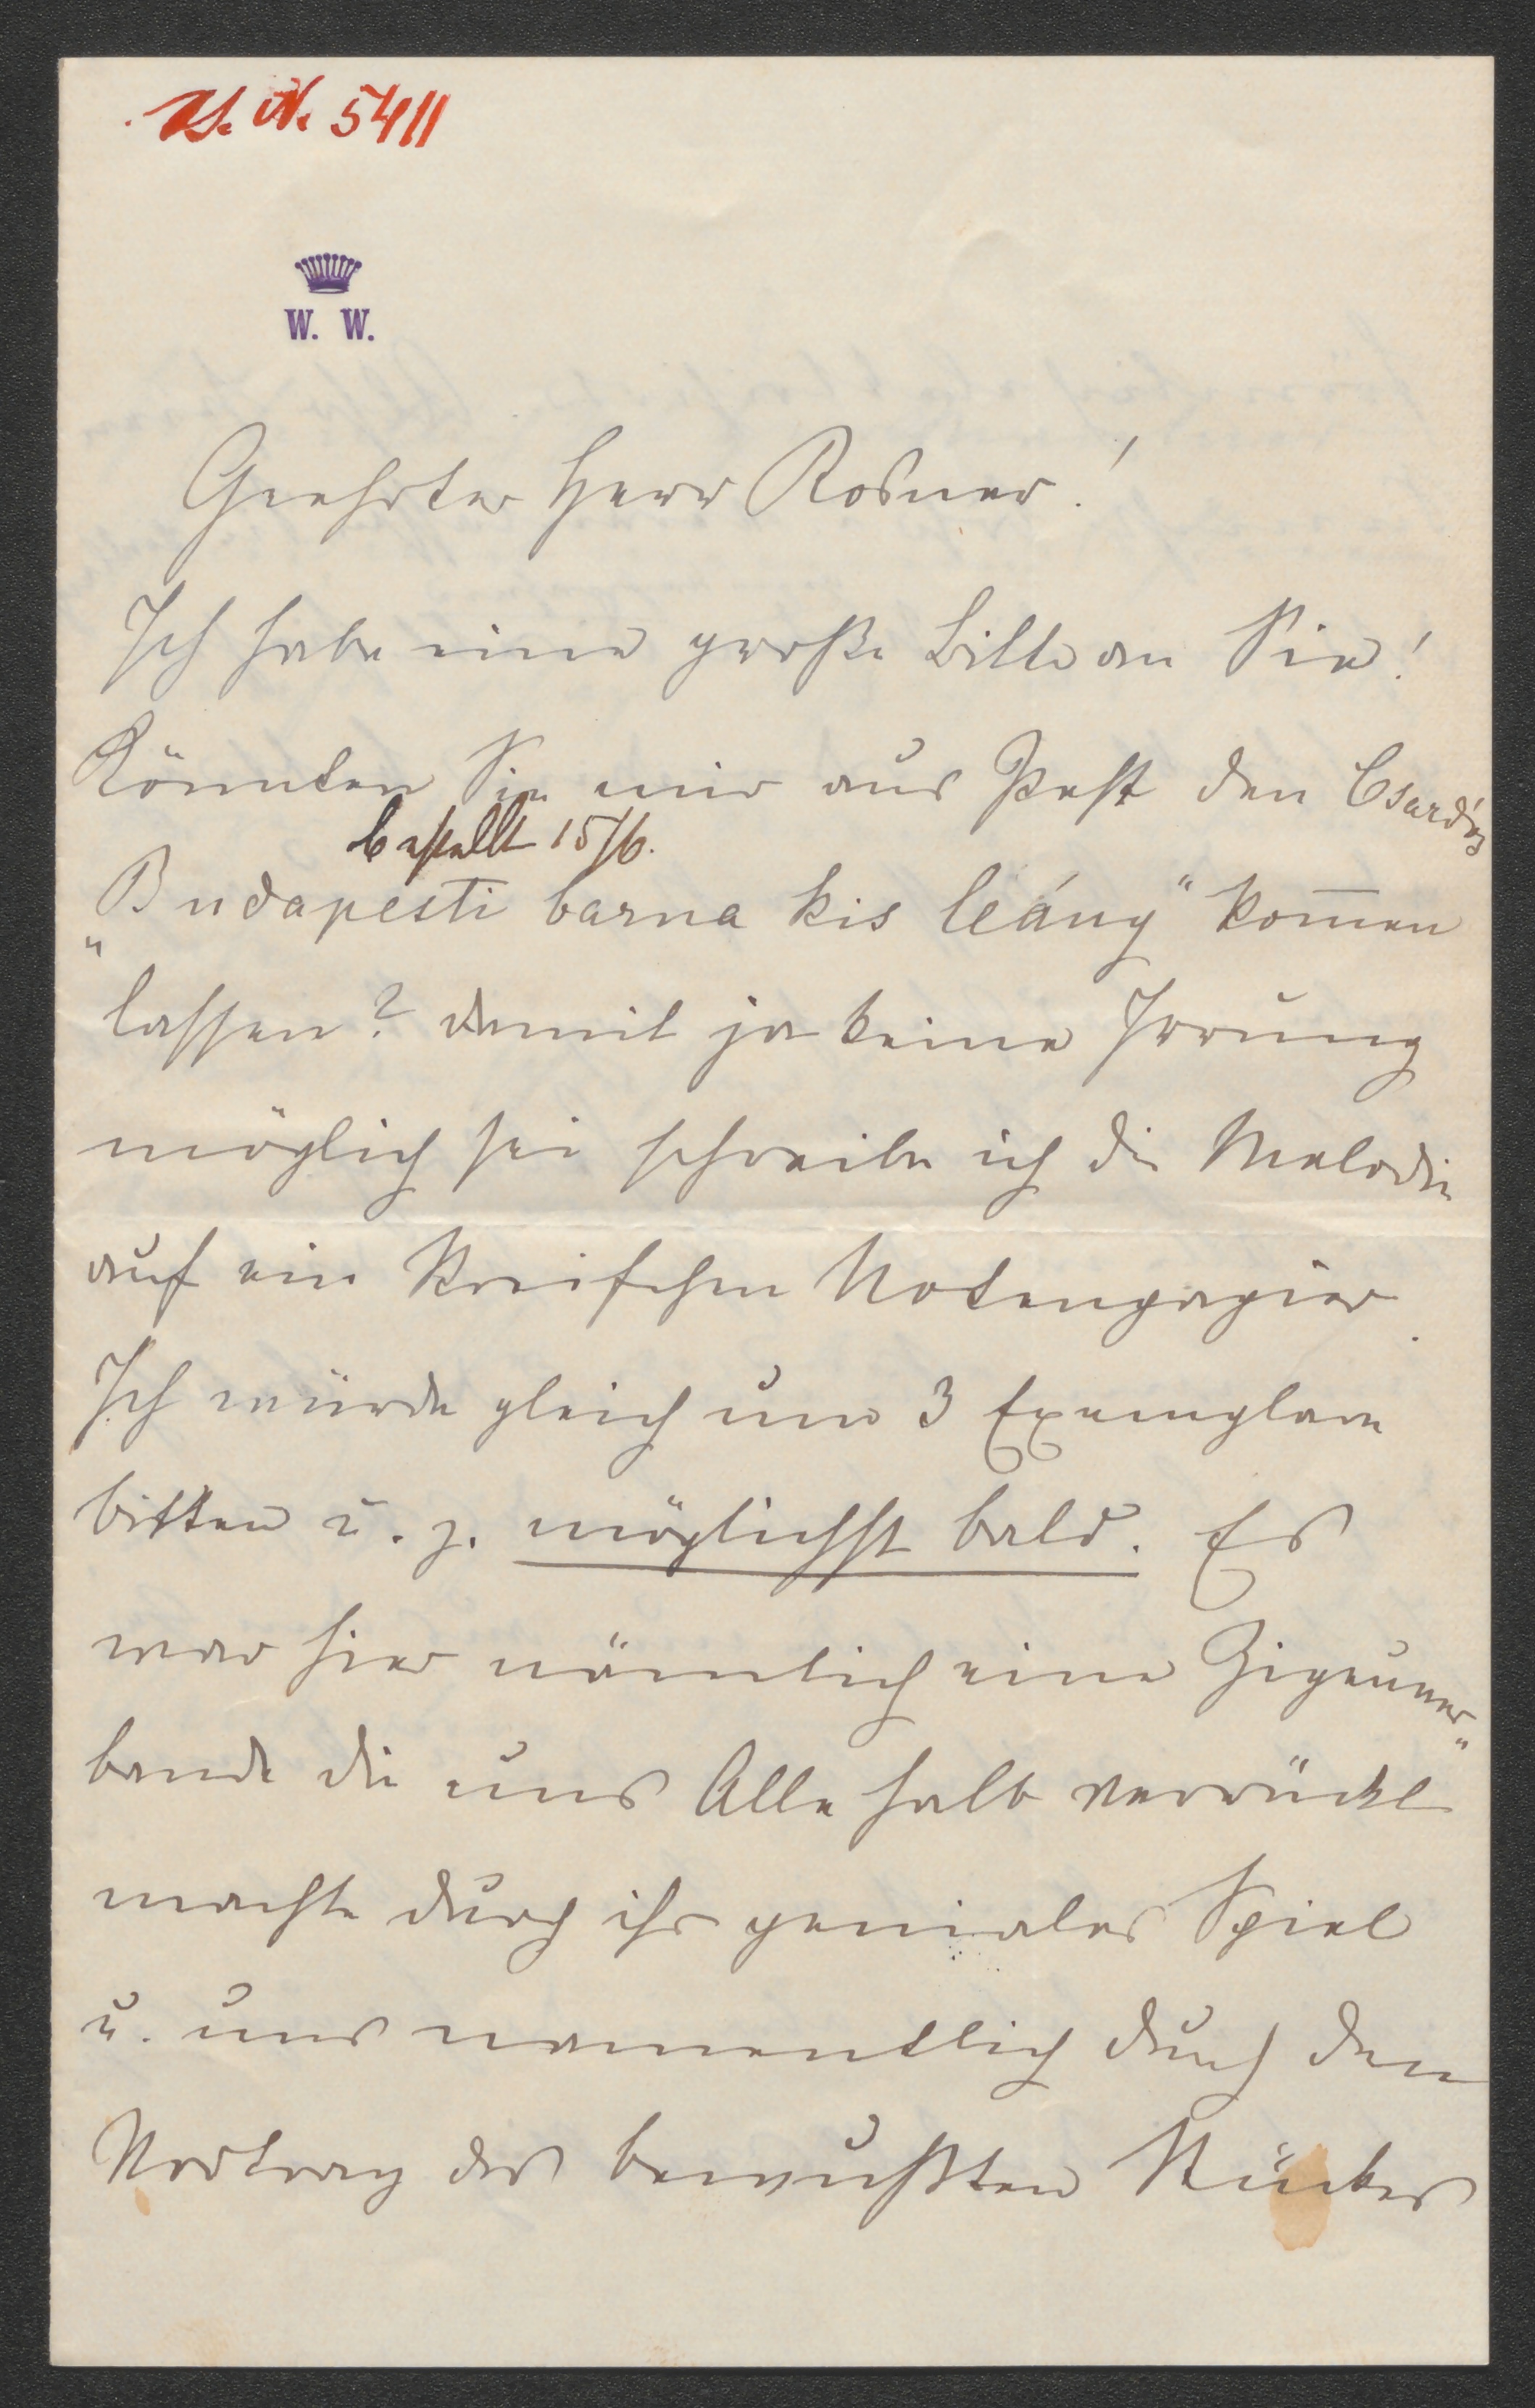 N. N. 5411
W. W.
Geehrter Herr Rosner!
Ich habe eine große Bitte an Sie!
Könnten Sie mir aus Pest den Csardás
bestellt 15/6.
„Budapesti barna kis leány“ kom̄en
lassen? damit ja keine Irrung
möglich sei schreibe ich die Melodie
auf ein Streifchen Notenpapier.
Ich würde gleich um 3 Exemplare
bitten u. z. möglichst bald. Es
war hier nämlich eine Zigeuner-
bande die uns Alle halb verrückt
machte durch ihr geniales Spiel
u. uns namentlich durch den
Vortrag des bewußten Stückes